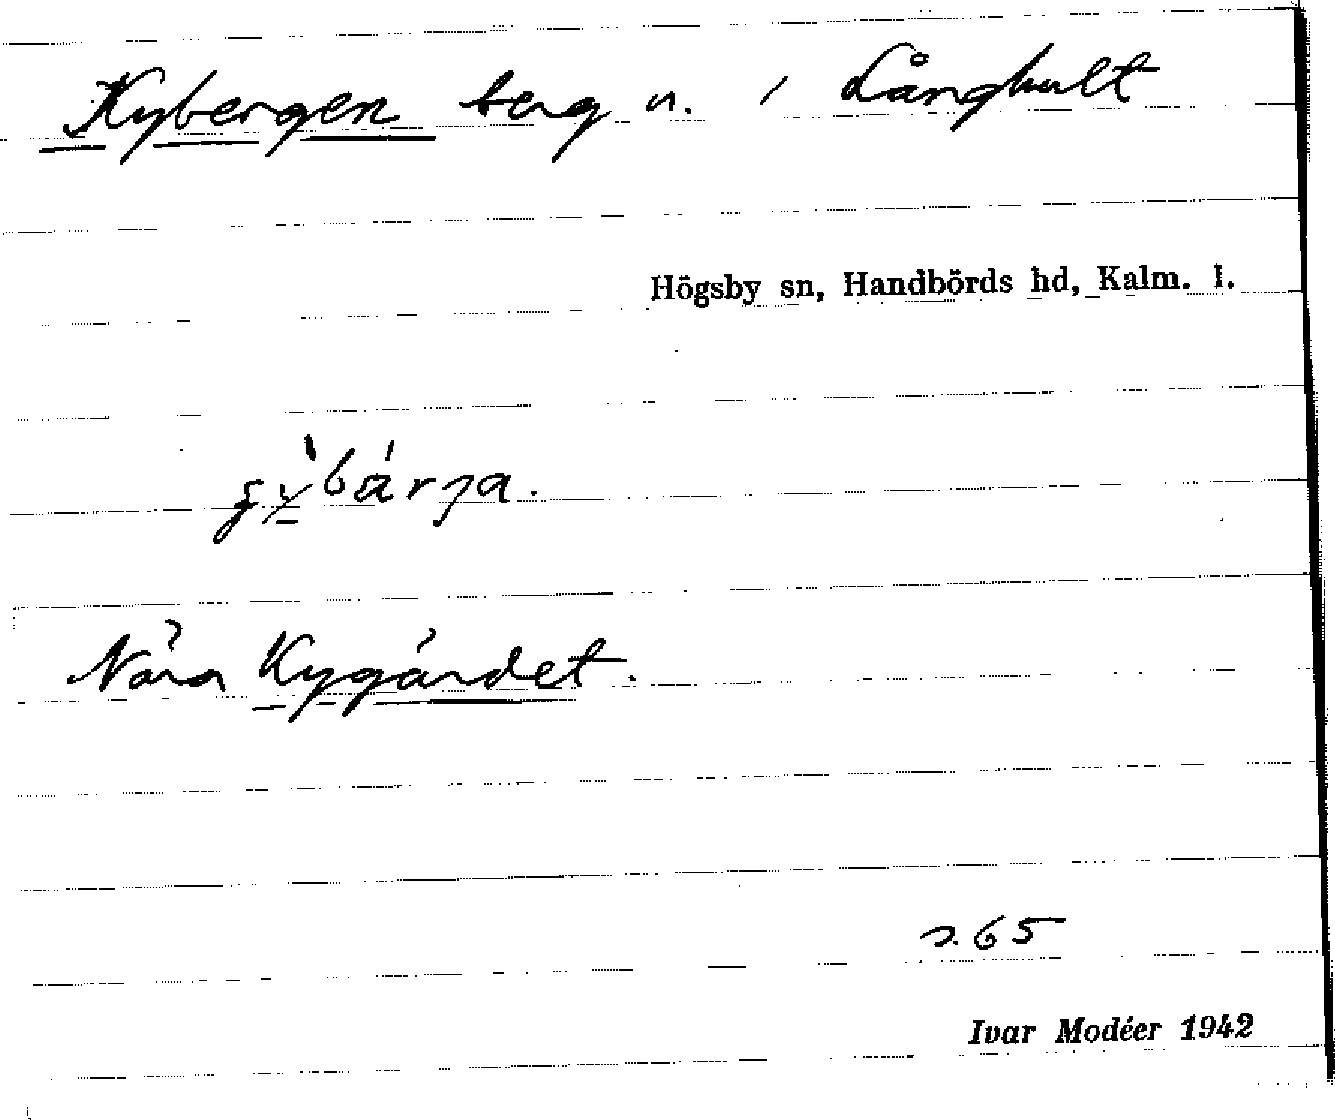 Kybergen berg n. i Långhult
Högsby sn, Handbörds hd, Kalm. l.
Nära Kygärdet.
s. 65
Ivar Modéer 1942